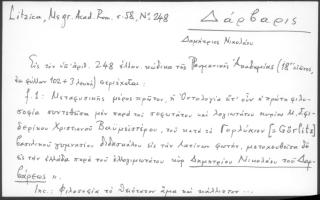 Litzica, Ms gr. Acad. Rom. σ. 58, Nº 248
Δάρβαρις
Δημήτριος Νικολάου
Εἰς τὸν ὑπ' ἀριθ. 248 ἑλλην. κώδικα τῆς Ρουμανικῆς Ἀκαδημίας (18ου αἰῶνος,
ἐκ φύλλων 102 + 3 λευκά) περιέχεται:
f. 1: Μεταφυσικῆς μέρος πρῶτον, ἡ Ὀντολογία εἴτ' οὖν ἡ πρώτη φιλο-
σοφία συντεθεῖσα μὲν παρὰ τοῦ σοφωτάτου καὶ λογιωτάτου κυρίου Μ. Φρε-
δερίκου Χριστιανοῦ Βαυμεϊστέρου, τοῦ κατὰ τὸ Γορλίκιον [= Görlitz]
βασιλικοῦ γυμνασίου διδασκάλου εἰς τὴν Λατίνων φωνήν, μετοχετευθεῖσα δὲ
εἰς τὴν ἑλλάδα παρὰ τοῦ ἐλλογιμωτάτου κὺρ Δημητρίου Νικολάου τοῦ Δαρ-
βάρεως».
Inc.: Φιλοσοφία τὸ θειότατον ἅμα καὶ κάλλιστον...